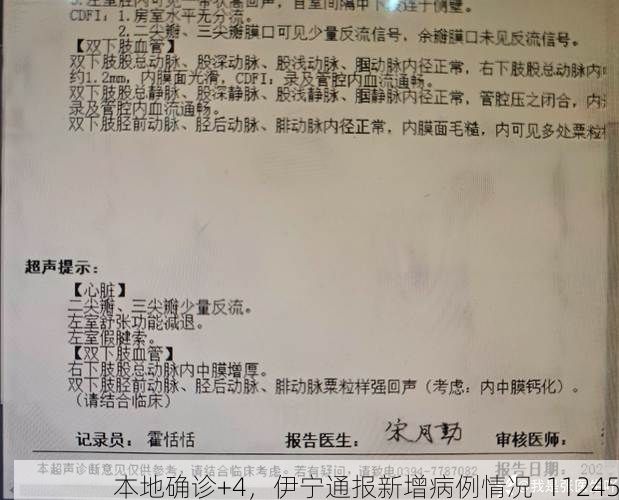 3.左室腔内可见一带状强回声，自室间隔中下段连于侧壁。
CDFI：1.房室水平无分流。
2.二尖瓣、三尖瓣膜口可见少量反流信号，余瓣膜口未见反流信号。
【双下肢血管】
双下肢股总动脉、股深动脉、股浅动脉、腘动脉内径正常，右下肢股总动脉内中
约1.2mm，内膜面光滑，CDFI：录及管腔内血流通畅。
双下肢股总静脉、股深静脉、股浅静脉、腘静脉内径正常，管腔压之闭合，内
录及管腔内血流通畅。
双下肢胫前动脉、胫后动脉、腓动脉内径正常，内膜面毛糙，内可见多处粟粒样
超声提示：
【心脏】
二尖瓣、三尖瓣少量反流。
左室舒张功能减退。
左室假腱索。
【双下肢血管】
右下肢股总动脉内中膜增厚。
双下肢胫前动脉、胫后动脉、腓动脉粟粒样强回声（考虑：内中膜钙化）。
（请结合临床）
记录员： 霍恬恬 报告医生： 宋月勤 审核医师：
本超声诊断意见仅供参考，请结合临床考虑。若有疑问，请致电0394-7787082 报告日期： 202
本地确诊+4，伊宁通报新增病例情况，1245